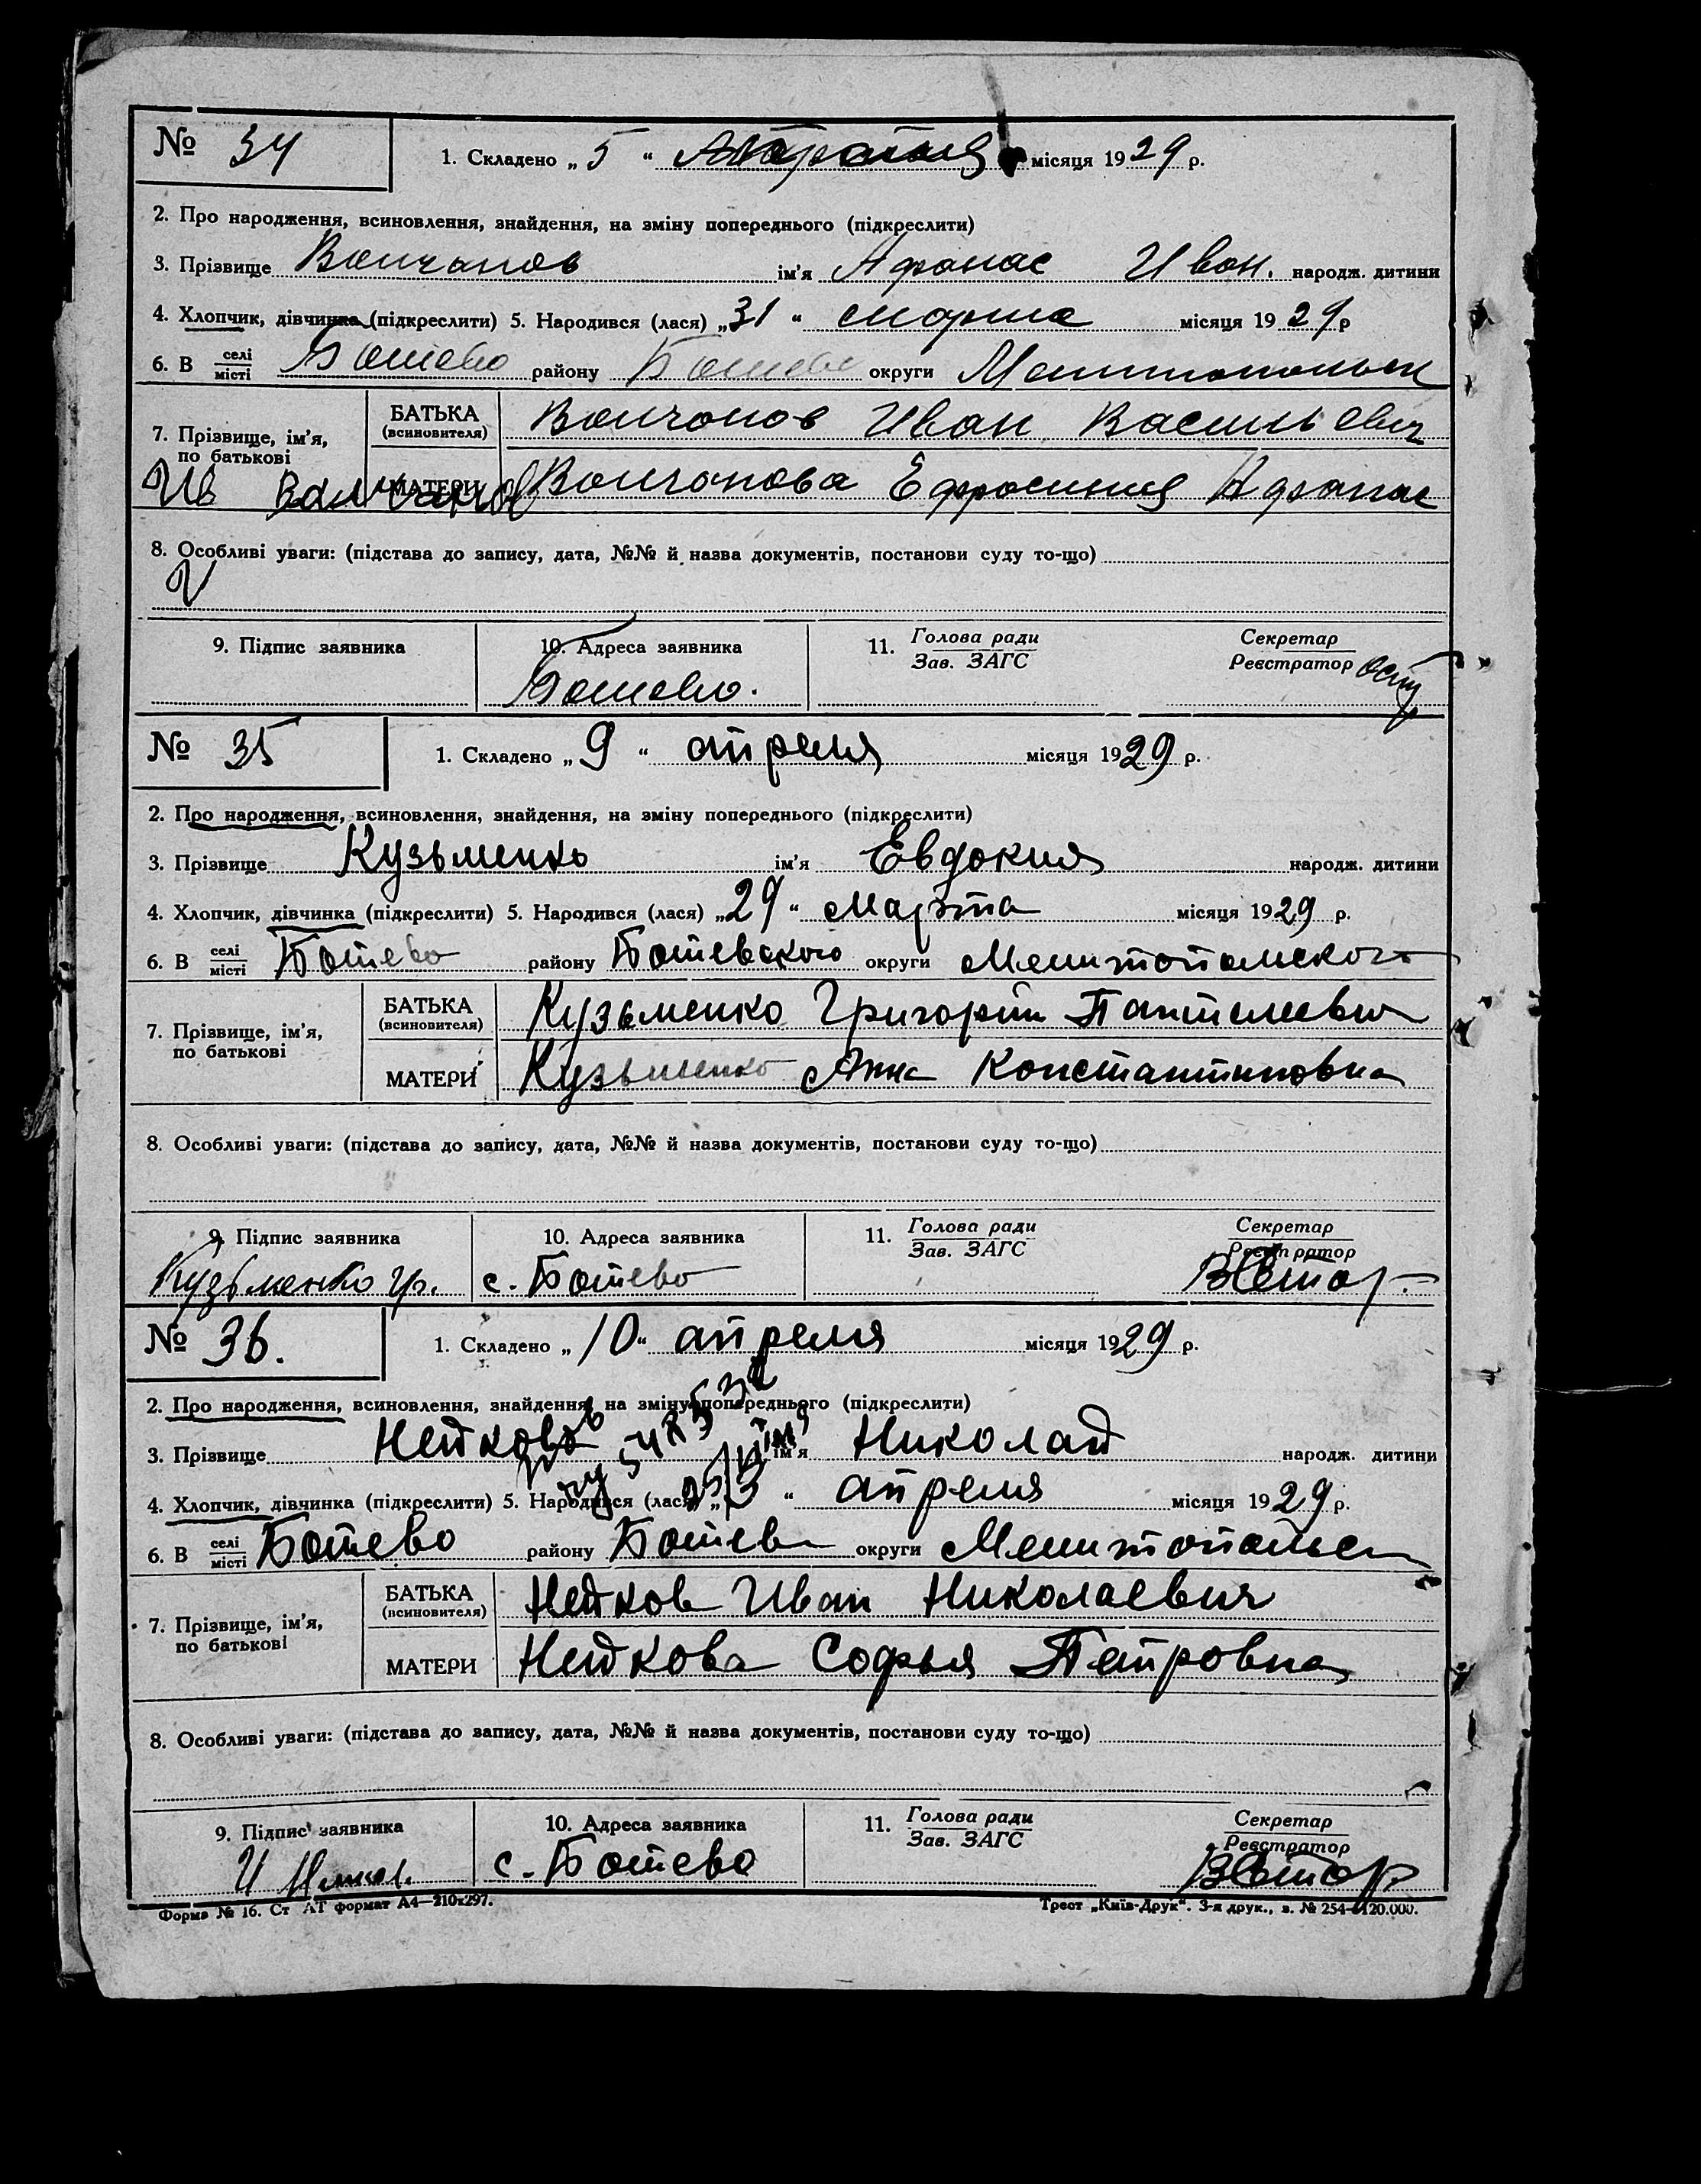 № 34
1. Складено „ 5 “ Апреля місяця 1929 р.
2. Про народження, всиновлення, знайдення, на зміну попереднього (підкреслити)
3. Прізвище Волчанов ім'я Афанас Иван. народж. дитини
4. Хлопчик, дівчинка (підкреслити) 5. Народився (лася) „31 “ марта місяця 1929 р
6. В селі місті Ботево району Ботево округи
7. Прізвище, ім'я, по батькові
БАТЬКА (всиновителя) Волчонов Иван Васильевич
МАТЕРИ Волчонова Ефросиния Афанас
Ив Волчанов
8. Особливі уваги: (підстава до запису, дата, №№ й назва документів, постанови суду то-що)
9. Підпис заявника
10. Адреса заявника
Ботево.
11. Голова ради Зав. ЗАГС
Секретар Реєстратор
№ 35
1. Складено „ 9 “ апреля місяця 1929 р.
2. Про народження, всиновлення, знайдення, на зміну попереднього (підкреслити)
3. Прізвище Кузьменко ім'я Евдокия народж. дитини
4. Хлопчик, дівчинка (підкреслити) 5. Народився (лася) „29“ Марта місяця 1929 р.
6. В селі місті Ботево району Ботевского округи Мелитопольского
7. Прізвище, ім'я, по батькові
БАТЬКА (всиновителя) Кузьменко Григорий
МАТЕРИ Кузьменко Анна Константиновна
8. Особливі уваги: (підстава до запису, дата, №№ й назва документів, постанови суду то-що)
9. Підпис заявника
Кузьменко Гр.
10. Адреса заявника
с. Ботево
11. Голова ради Зав. ЗАГС
Секретар Реєстратор
№ 36.
1. Складено „ 10“ апреля місяця 1929 р.
2. Про народження, всиновлення, знайдення, на зміну попереднього (підкреслити)
3. Прізвище Нейков ім'я Николай народж. дитини
4. Хлопчик, дівчинка (підкреслити) 5. Народився (лася) „3 “ апреля місяця 1929 р.
6. В селі місті Ботево району Ботев округи Мелитопольск
7. Прізвище, ім'я, по батькові
БАТЬКА (всиновителя) Нейков Иван Николаевич
МАТЕРИ Нейкова Софья Петровна
8. Особливі уваги: (підстава до запису, дата, №№ й назва документів, постанови суду то-що)
9. Підпис заявника
10. Адреса заявника
с. Ботево
11. Голова ради Зав. ЗАГС
Секретар Реєстратор
Форма № 16. Ст АТ формат А4—210х297.
Трест „Київ-Друк“. 3-я друк., з. № 254—120.000.